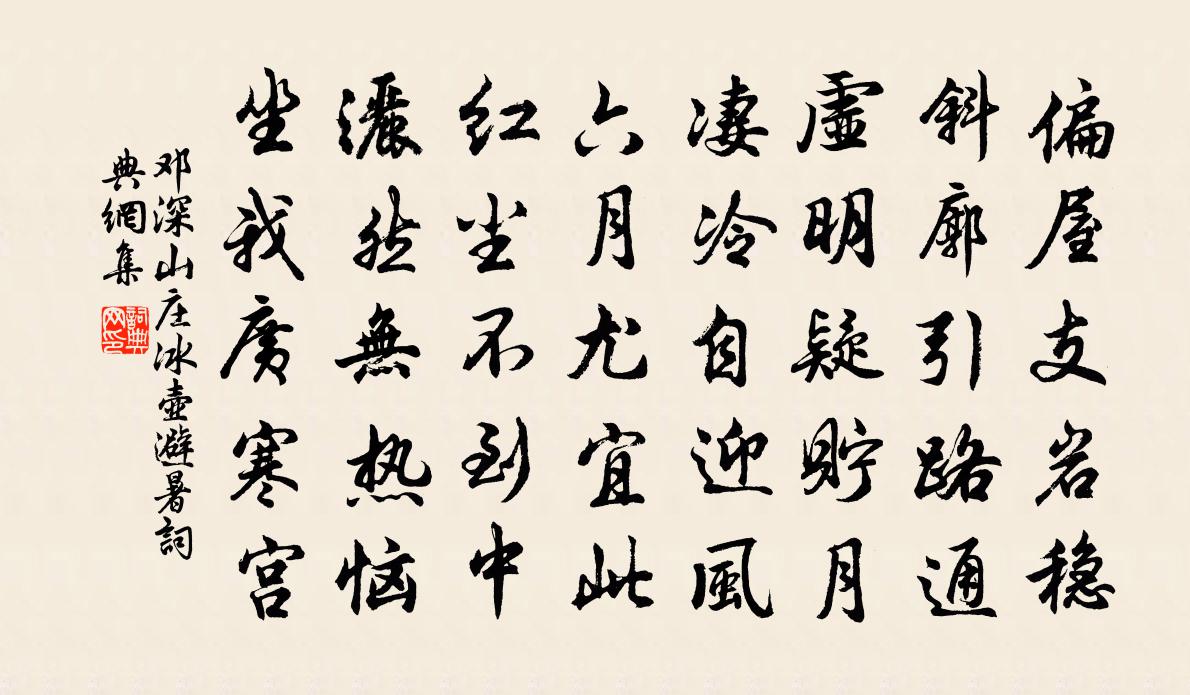 偏屋支岩稳
斜廓引路通
虚明疑贮月
凄冷自迎風
六月尤宜此
红尘不到中
灑然無热恼
坐我廣寒宫
邓深山庄冰壶避暑詞
典網集
詞典
网印